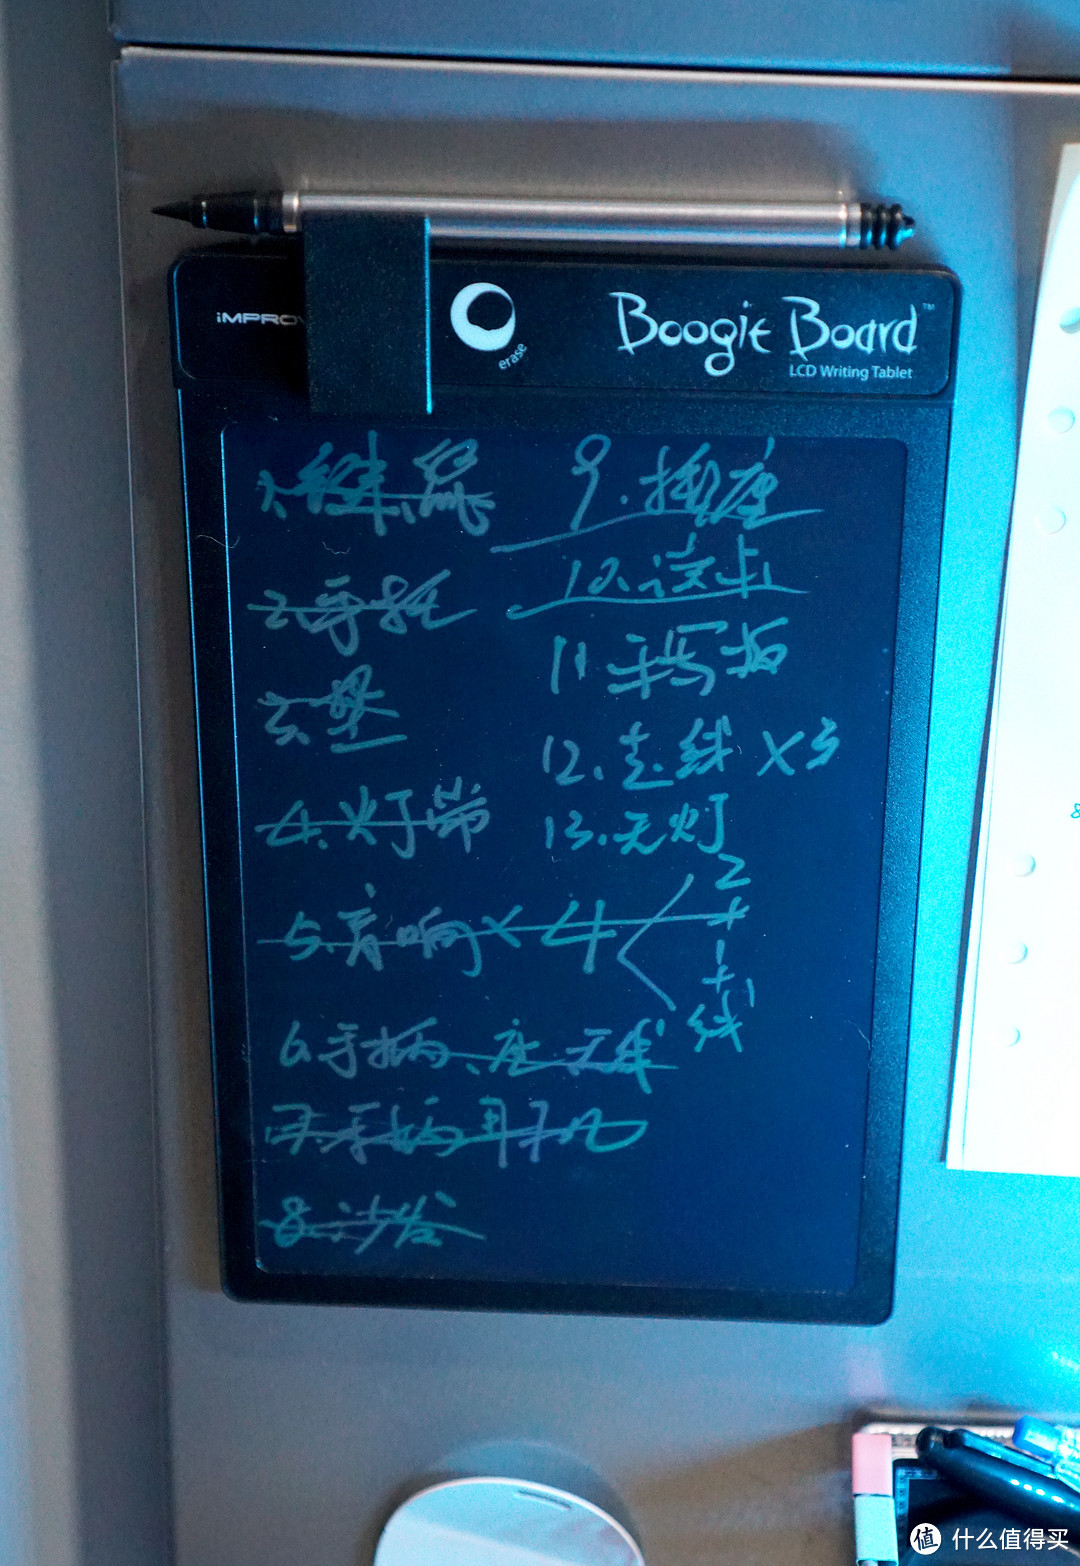 iMPROV
erase
Boogie Board™
LCD Writing Tablet
1.键、鼠
2.手托
3.垫
4.灯带
5.音响×4
2+1+线
6.手柄、座、无线
7.手柄耳机
8.沙发
9.插座
10.读卡
11.手写板
12.走线×3
13.无灯
值 什么值得买